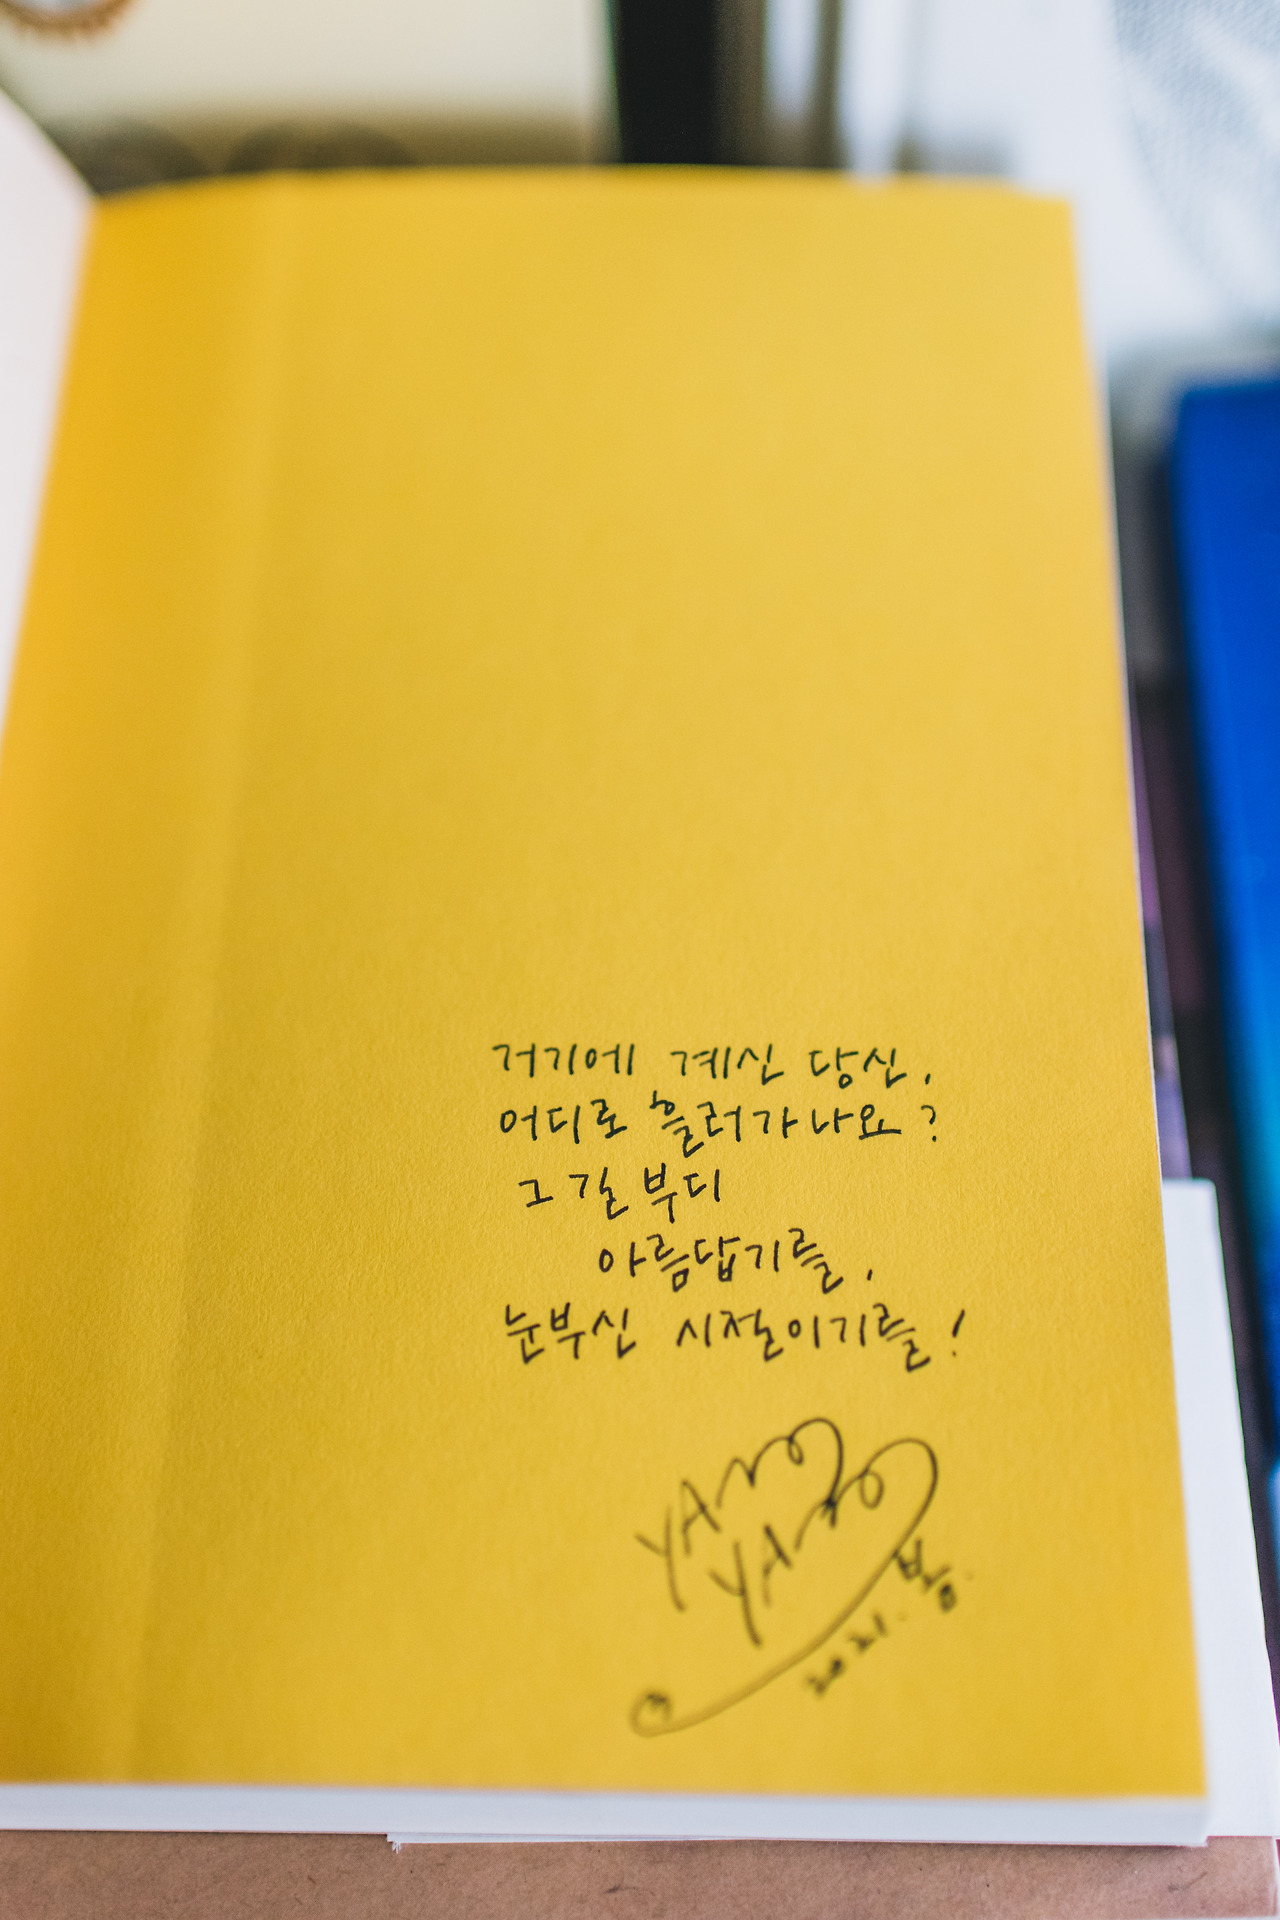 거기에 계신 당신,
어디로 흘러가나요?
그 길 부디
아름답기를,
눈부신 시절이기를!
YAM
YAM
2021. 봄.